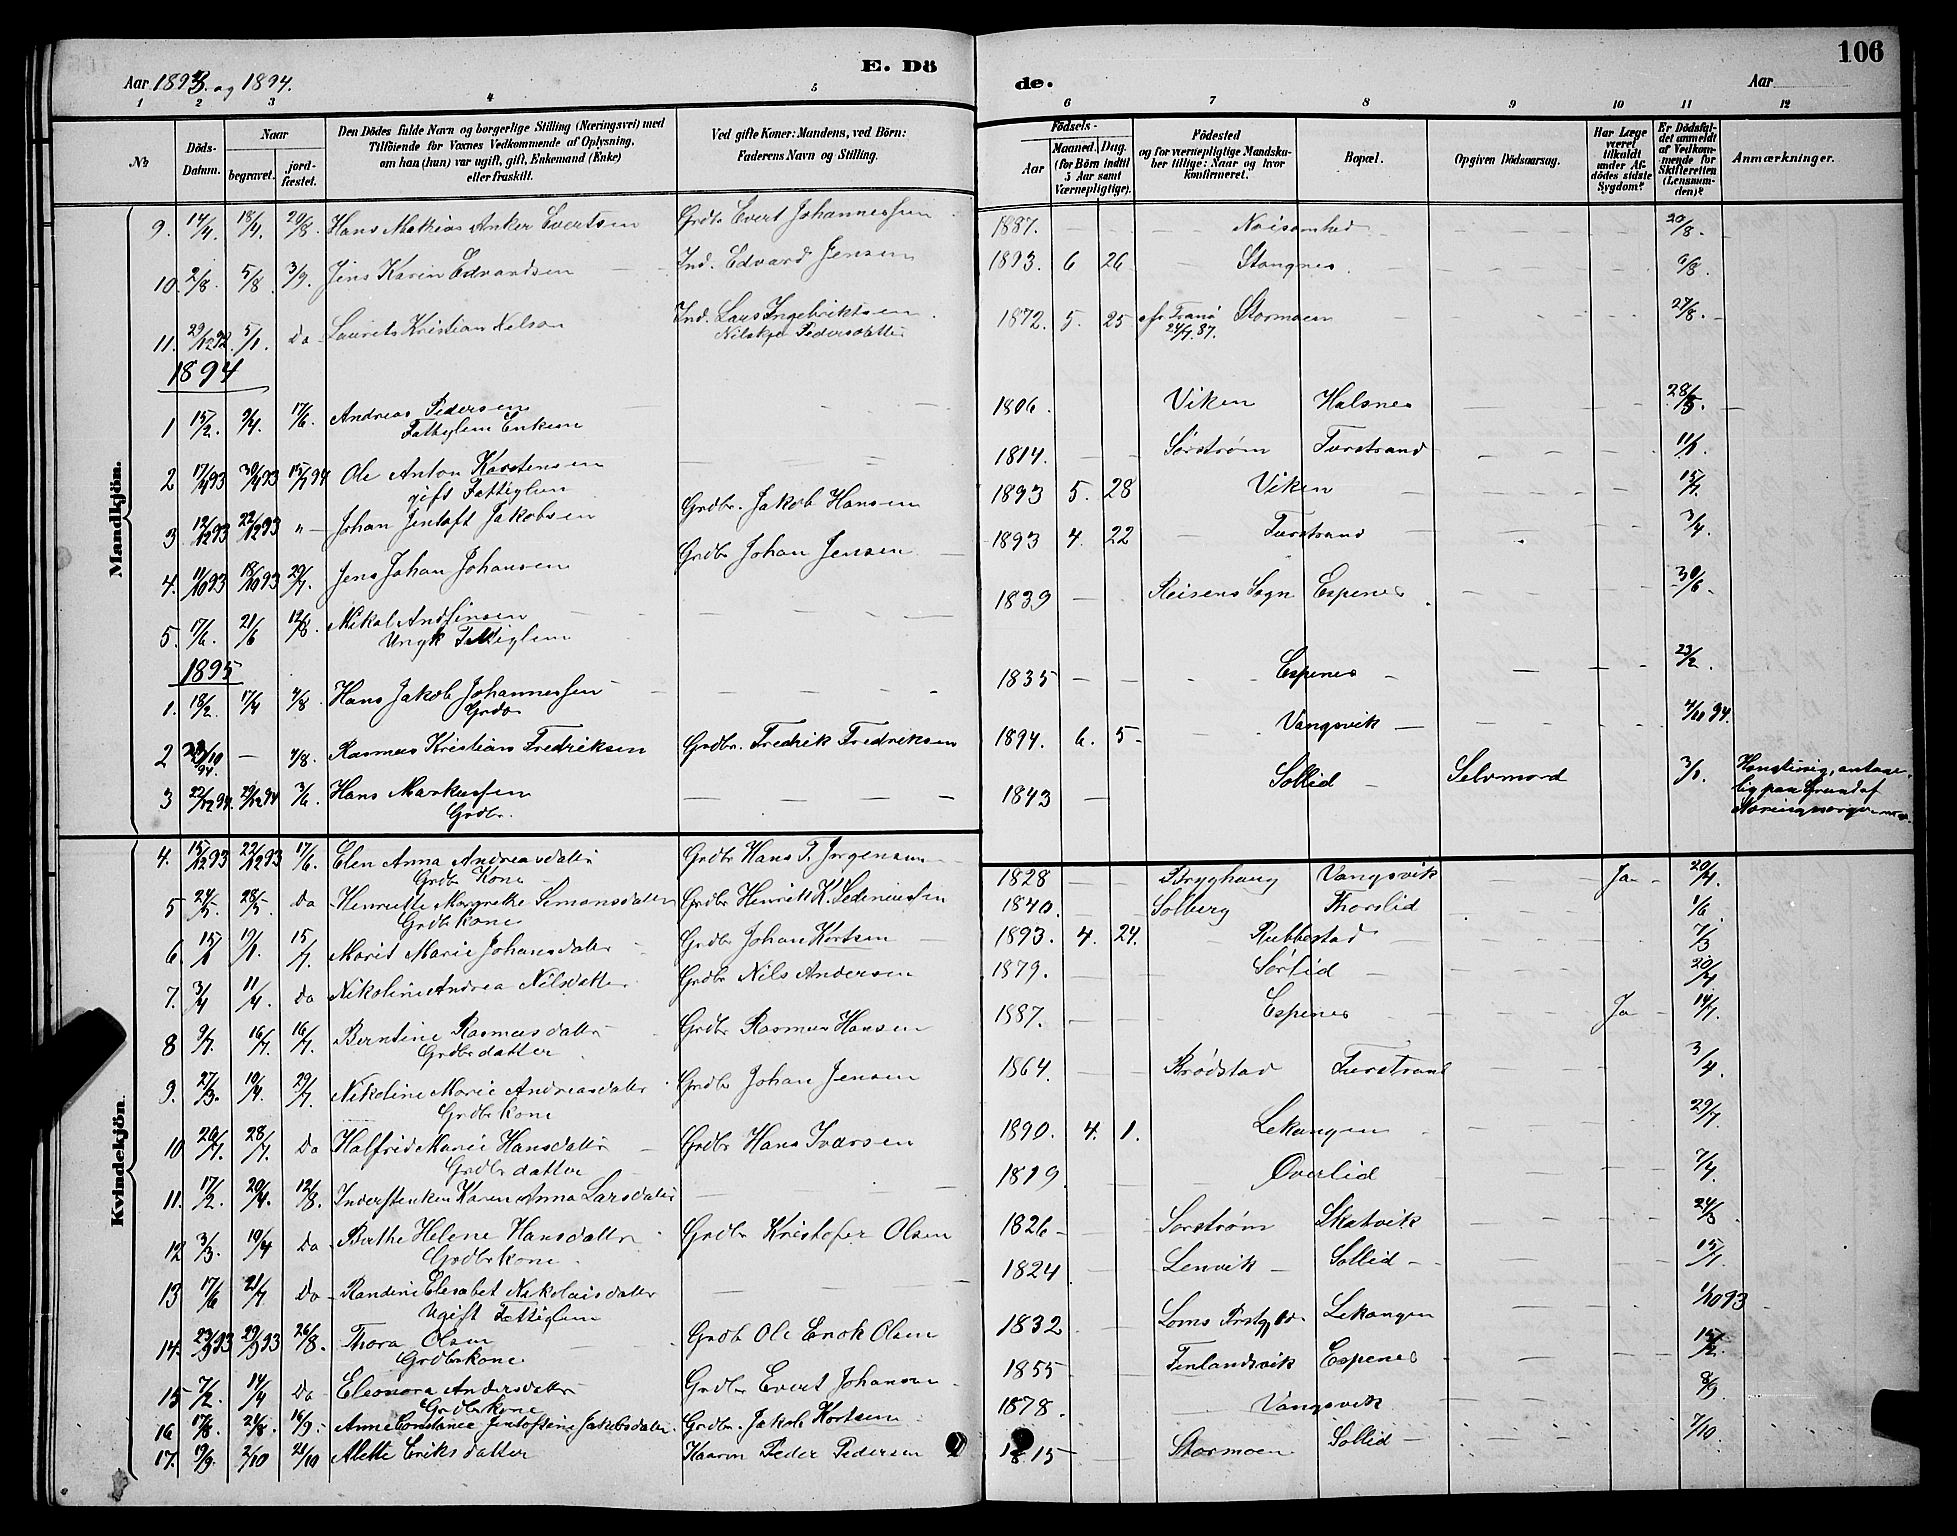 106
Aar 1893 og 1894.
E. Dö
de.
Aar
1 2 3 4 5 6 7 8 9 10 11 12
No
Döds-Datum.
Naar
begravet.
jordfæstet.
Den Dödes fulde Navn og borgerlige Stilling (Næringsvei) med
Tilföiende for Voxnes Vedkommende af Oplysning,
om han (hun) var ugift, gift, Enkemand (Enke)
eller fraskilt.
Ved gifte Koner: Mandens, ved Börn:
Faderens Navn og Stilling.
Födsels-
Aar
Maaned. Dag.
(for Börn indtil
5 Aar samt
Værnepligtige).
Födested
og for værnepligtige Mandska-
ber tillige: Naar og hvor
konfirmeret.
Bopæl.
Opgiven Dödsaarsag.
Har Læge
været
tilkaldt
under Af-
dödes sidste
Sygdom?
Er Dödsfal-
det anmeldt
af Vedkom-
mende for
Skifteretten
(Lensman-
den)?
Anmærkninger.
Mandkjön.
9. 14/4. 18/4. 20/8. Hans Mathias Anker Evertsen Grdbr Evert Johannessen 1887. Noisomhed 20/8.
10. 2/8. 5/8. 3/9. Jens Karin Edvardsen Ind. Edvard Jensen 1893. 6 26 Stangnes 6/8.
11. 29/12 92. 5/1. Do Laurits Kristian Nelson Ind. Lars Ingebriktsen 1872. 5. 25 Tranö Stormoen 27/8.
Pedersdatter 24/7. 87.
1894
1 15/2. 9/4. 17/6. Andreas Pedersen 1806. Viken Halsnes 28/5.
Fattiglem Enkem
2 17/4 93 30/4 93 15/7 94 Ole Anton Karstensen 1814. Sørstrøm Furstrand 11/1.
gift Fattiglem
3 12/12 93 22/12 93 " Johan Jentoft Jakobsen Grdbr. Jakob Hansen 1893 5. 28 Viken 15/7.
4. 11/10 93 18/10 93 29/7. Jens Johan Johansen Grdbr Johan Jensen 1893 4. 22 Furstrand 3/4.
5. 17/6. 21/6 12/8. Nikol Andf Jensen 1839 Reisens Sogn Espenes 30/6.
Ungk Fattiglem
1895
1. 18/2. 17/4 4/8. Hans Jakob Johannessen 1835 Espenes 23/2.
Grdbr
2 10/94. 4/8. Rasmus Kristian Fredriksen Grdbr. Fredrik Fredriksen 1894. 6. 5 Vangsvik 4/11 94.
3 22/12 94. 29/12 94 3/6. Hans Markussen 1843 Sollid Selvmord 3/1. Hængte sig, antage-
Grdbr. lig paa Grund af
Næringssorger
Kvindekjön.
4. 15/12 93 22/12 93 17/6. Elen Anna Andreasdatter Grdbr Hans P. Jørgensen 1828 Bryghaug Vangsvik Ja 20/4.
Grdbr Kone
5 24/5. 28/5. Do Henriette Margrethe Simonsdatter Grdbr Henrik K. Sedeniussen 1840. Solberg Thorslid 1/6.
Grdbr kone
6 15/1 19/1. 15/7. Marit Marie Johansdatter Grdbr Johan Kortsen 1893. 4. 24. Rubbestad 7/3
7. 3/4 11/4. Do Nikoline Andrea Nilsdatter Grdbr Nils Andersen 1879. Sørlid 20/4
8 9/7. 16/7. 16/7. Berntine Rasmusdatter Grdbr Rasmus Hansen 1887. Espenes Ja 14/7.
Grdbr datter
9. 27/3. 10/4. 29/7. Nikoline Marie Andreasdatter Grdbr Johan Jensen 1864. Brødstad Furstrand 3/4.
Grdbr kone
10 20/7. 28/7. Do Halfrid Marie Hansdatter Grdbr Hans Ivarsen 1890. 4. 1. Lekangen 29/7.
Grdbr datter
11. 17/2. 20/4. 12/8. Inderstenken Karen Anna Larsdatter 1819. Øverlid 7/4.
12 3/3. 19/4 Do Berthe Helene Hansdatter Grdbr Kristofer Olsen 1826 Sørstrøm Skatvik 24/3.
Grdbr kone
13 17/6 21/7 Do Randine Elesabet Nikolaisdatter 1824 Lenvik Sollid 15/7.
Ugift Fattiglem
14. 23/9 93 29/9 93 26/8. Thora Olsen Grdbr Ole Enok Olsen 1832 Loms Prstgjeld. Lekangen 1/10 93
Grdbr kone
15 7/2. 14/4 Do Eleonora Andersdatter Grdbr Evert Johansen 1855 Finlandsvik Espenes 15/2.
Grdbr kone
16 17/8. 24/8. 16/9. Anne Constance Jentoftine Jakobsdatter. Grdbr. Jakob Kortsen 1878 Vangsvik 8/9.
17. 19/9. 2/10 21/10 Alette Eriksdatter Kaarm Peder Pedersen 1815 Stormoen Sollid 7/10.